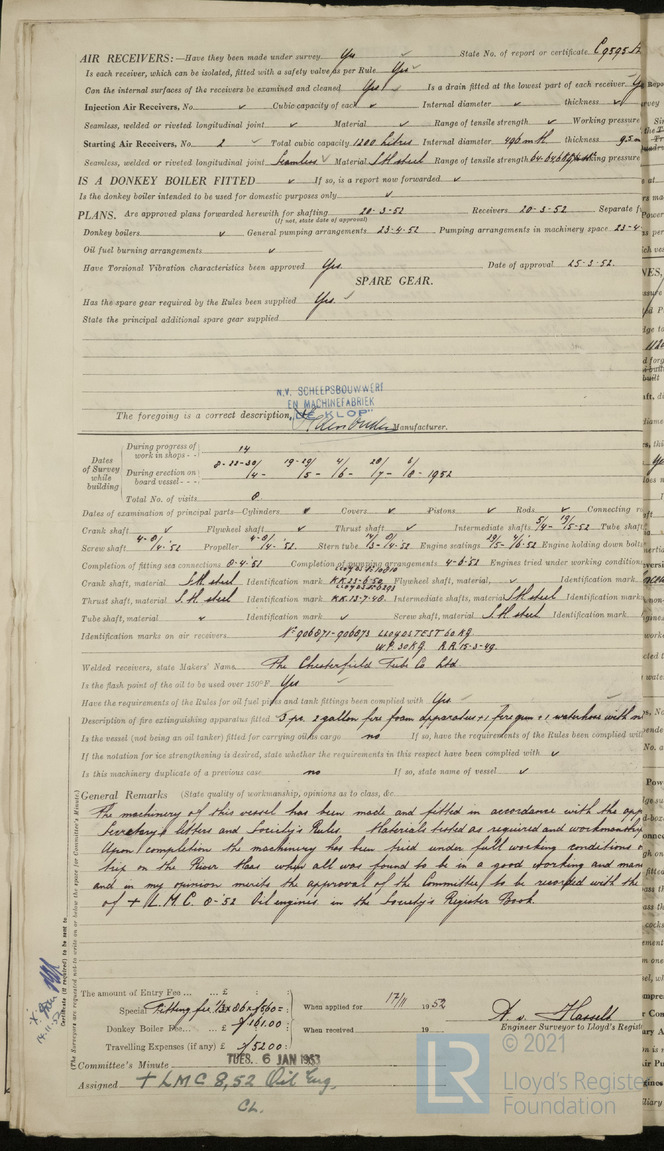 AIR RECEIVERS:—Have they been made under survey Yes ✓ State No. of report or certificate C 9595
Is each receiver, which can be isolated, fitted with a safety valve as per Rule Yes ✓
Can the internal surfaces of the receivers be examined and cleaned Yes ✓ Is a drain fitted at the lowest part of each receiver
Injection Air Receivers, No. ✓ Cubic capacity of each ✓ Internal diameter ✓ thickness ✓
Seamless, welded or riveted longitudinal joint ✓ Material ✓ Range of tensile strength ✓ Working pressure
Starting Air Receivers, No. 2 ✓ Total cubic capacity 1200 litres Internal diameter 496 m/m thickness
Seamless, welded or riveted longitudinal joint Seamless ✓ Material S.M. steel Range of tensile strength Working pressure
IS A DONKEY BOILER FITTED ✓ If so, is a report now forwarded ✓
Is the donkey boiler intended to be used for domestic purposes only ✓
PLANS. Are approved plans forwarded herewith for shafting 20-3-52 Receivers 20-3-52 Separate
(If not, state date of approval)
Donkey boilers ✓ General pumping arrangements 23-4-52 Pumping arrangements in machinery space 23-4
Oil fuel burning arrangements ✓
Have Torsional Vibration characteristics been approved Yes Date of approval 25-3-52.
SPARE GEAR.
Has the spare gear required by the Rules been supplied Yes. ✓
State the principal additional spare gear supplied
N.V. SCHEEPSBOUWWERF
EN MACHINEFABRIEK
"DE KLOP"
The foregoing is a correct description, Manufacturer.
Dates of Survey while building
During progress of work in shops - - 14
During erection on board vessel - - - 8-22-30/4- 19-29/5- 4/6- 28/7- 6/8- 1952
Total No. of visits 8
Dates of examination of principal parts—Cylinders ✓ Covers ✓ Pistons ✓ Rods ✓ Connecting
Crank shaft ✓ Flywheel shaft ✓ Thrust shaft ✓ Intermediate shafts Tube shaft
Screw shaft 4-8/4-52 Propeller 4-8/4-52. Stern tube Engine seatings Engine holding down bolts
Completion of fitting sea connections 8-4-51 Completion of pumping arrangements 4-6-52 Engines tried under working conditions
Crank shaft, material S.M. steel Identification mark Flywheel shaft, material ✓ Identification mark
Thrust shaft, material S.M. steel Identification mark Intermediate shafts, material S.M. steel Identification marks
Tube shaft, material ✓ Identification mark ✓ Screw shaft, material S.M. steel Identification mark
Identification marks on air receivers. No 906871-906873 LLOYDS TEST 60 KG
W.P. 30 KG. 15-3-49.
Welded receivers, state Makers' Name The Chesterfield Tube Co. Ltd
Is the flash point of the oil to be used over 150°F Yes ✓
Have the requirements of the Rules for oil fuel pipes and tank fittings been complied with Yes ✓
Description of fire extinguishing apparatus fitted 5 pc. 2 gallon fire foam apparatus + 1 fire gun + 1 waterhose with
Is the vessel (not being an oil tanker) fitted for carrying oil as cargo no If so, have the requirements of the Rules been complied with
If the notation for ice strengthening is desired, state whether the requirements in this respect have been complied with ✓
Is this machinery duplicate of a previous case no If so, state name of vessel ✓
General Remarks (State quality of workmanship, opinions as to class, &c.
The machinery of this vessel has been made and fitted in accordance with the
Secretary's letters and Society's Rules. Materials tested as required and workmanship
Upon completion the machinery has been tried under full working conditions
trip on the River Maas when all was found to be in a good working and
and in my opinion merits the approval of the Committee to be recorded with the
of + L.M.C. 8-52 Oil engines. in the Society's Register Book.
The amount of Entry Fee ... ... £ : :
Special
Donkey Boiler Fee... ... £
Travelling Expenses (if any) £
When applied for 17/11 1952
When received 19
A. v. Hasselt
Engineer Surveyor to Lloyd's Register
Committee's Minute TUES. 6 JAN 1953
Assigned + LMC 8,52 Oil Eng.
CL.
(The Surveyors are requested not to write on or below the space for Committee's Minute.)
Certificate (if required) to be sent to
14-11-52
LR
© 2021
Lloyd's Register
Foundation